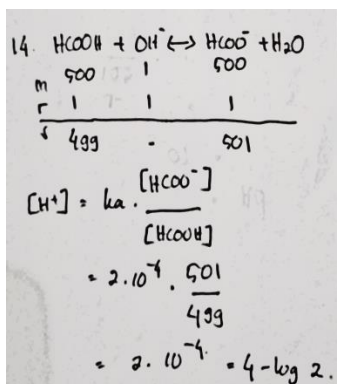 14. HCOOH + OH⁻ ⟷ HCOO⁻ + H₂O
m 500 1 500
r 1 1 1
s 499 - 501
[H⁺] = ka . [HCOO⁻] / [HCOOH]
= 2.10⁻⁴ . 501 / 499
= 2. 10⁻⁴. = 4 - log 2.